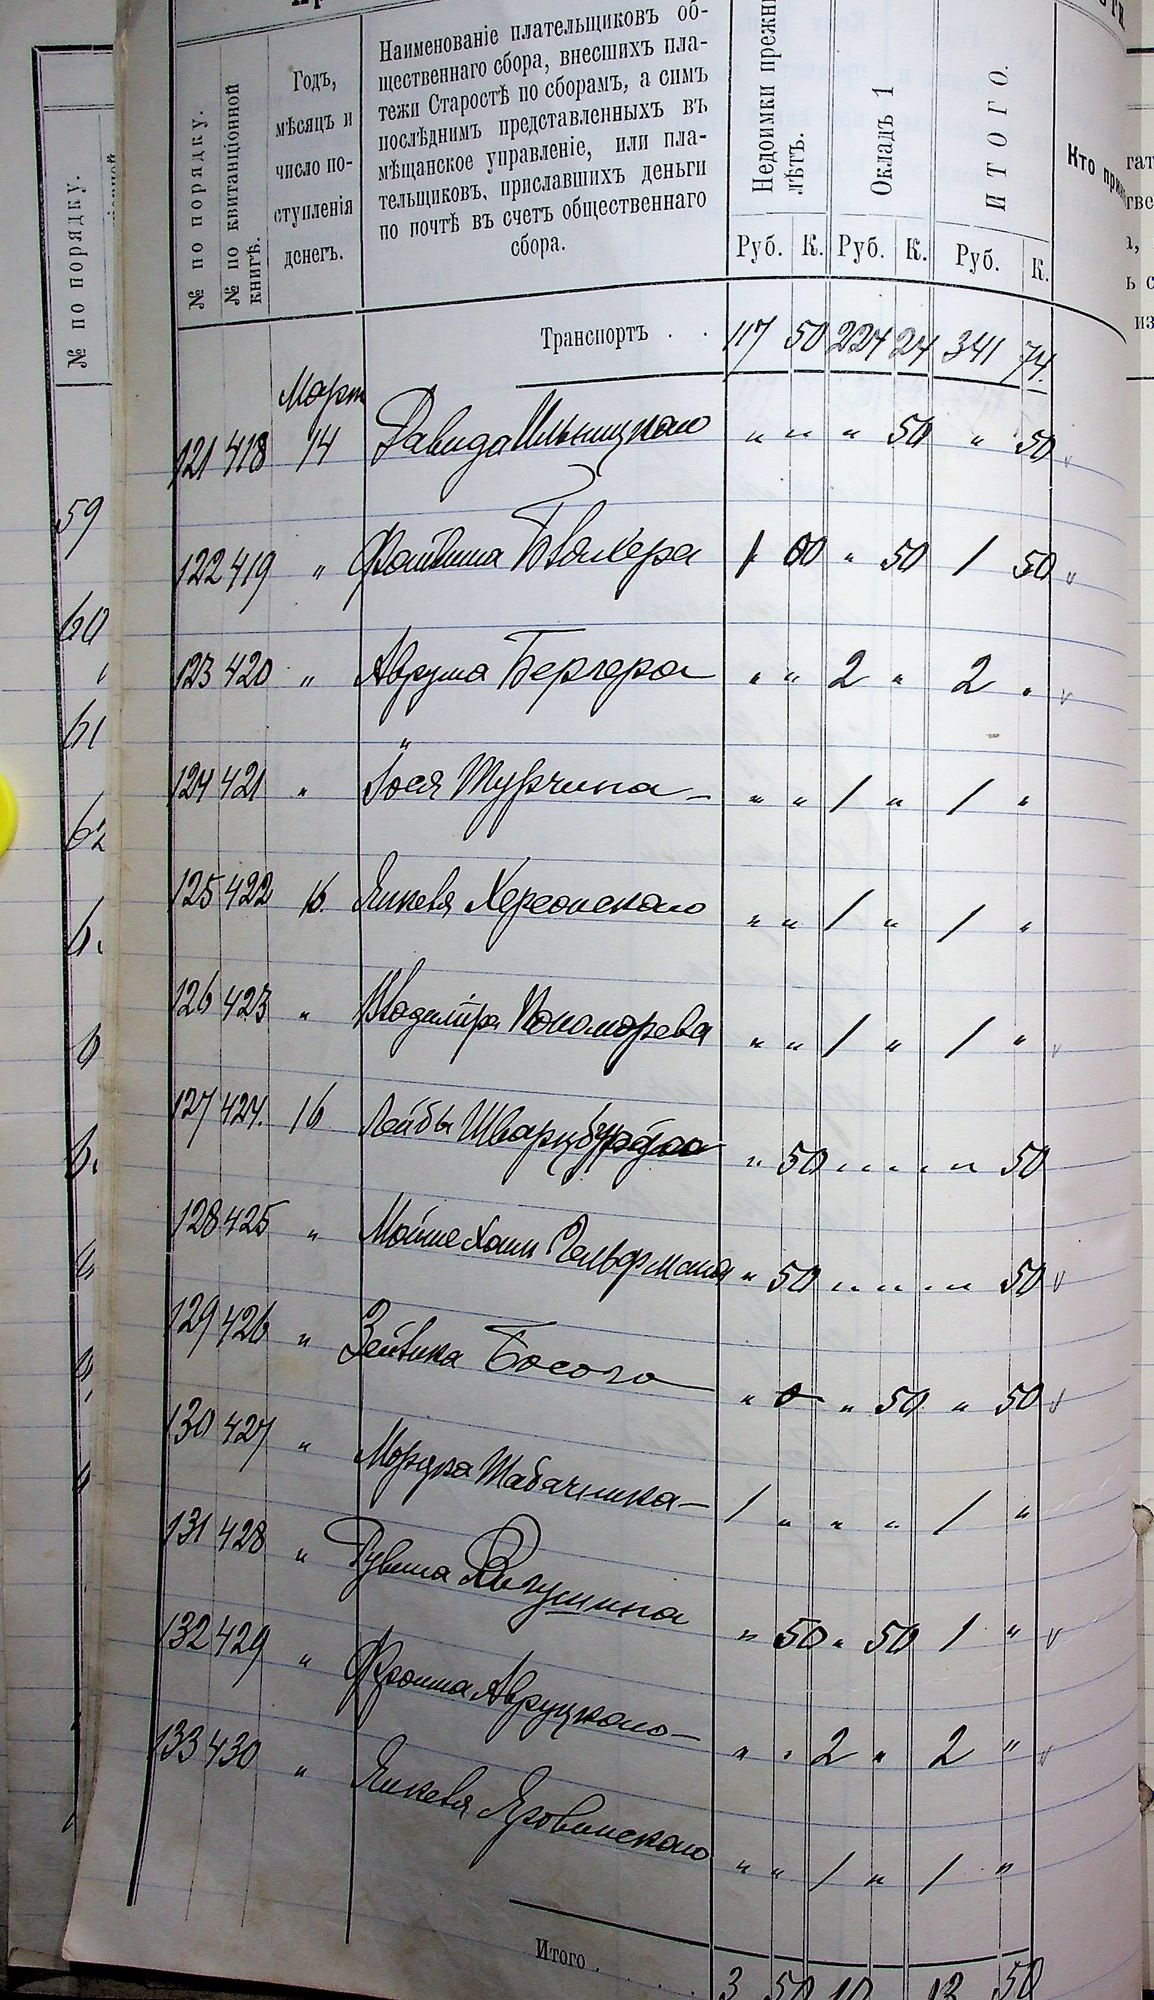 № по порядку.
№ по порядку.
№ по квитанціонной книгѣ.
Годъ,
мѣсяцъ и
число по-
ступленія
денегъ.
Наименованіе плательщиковъ об-
щественнаго сбора, внесшихъ пла-
тежи Старостѣ по сборамъ, а симъ
послѣднимъ представленныхъ въ
мѣщанское управленіе, или пла-
тельщиковъ, приславшихъ деньги
по почтѣ въ счетъ общественнаго
сбора.
Недоимки прежн
лѣтъ.
Окладъ 1
ИТОГО.
Кто прин
Руб. К. Руб. К. Руб. К.
Транспортъ . . 117 50 224 24 341 74.
Март
121 418 14 Давида Ильницкаго " " " 50 " 50
122 419 " 1 00 " 50 1 50
123 420 " Аврума Бергера " " 2 " 2 "
124 421 " Іося Турчина " " 1 " 1 "
125 422 16. Янкеля Херсонскаго " " 1 " 1 "
126 423 " Владиміра Пономорева " " 1 " 1 "
127 424. 16 Лейбы " 50 " " " 50
128 425 " Мойше Хаим Гельфмана " 50 " " " 50
129 426 " Зейвика Босого " " 50 " 50
130 427 " Мордка Табачника 1 " " " 1 "
131 428 " Рувина " 50 " 50 1 "
132 429 " Фроима Авруцкаго " " 2 " 2 "
133 430 " Янкеля Яровинскаго " " 1 " 1 "
Итого . . . . 3 50 10 13 50
59
60
61
62